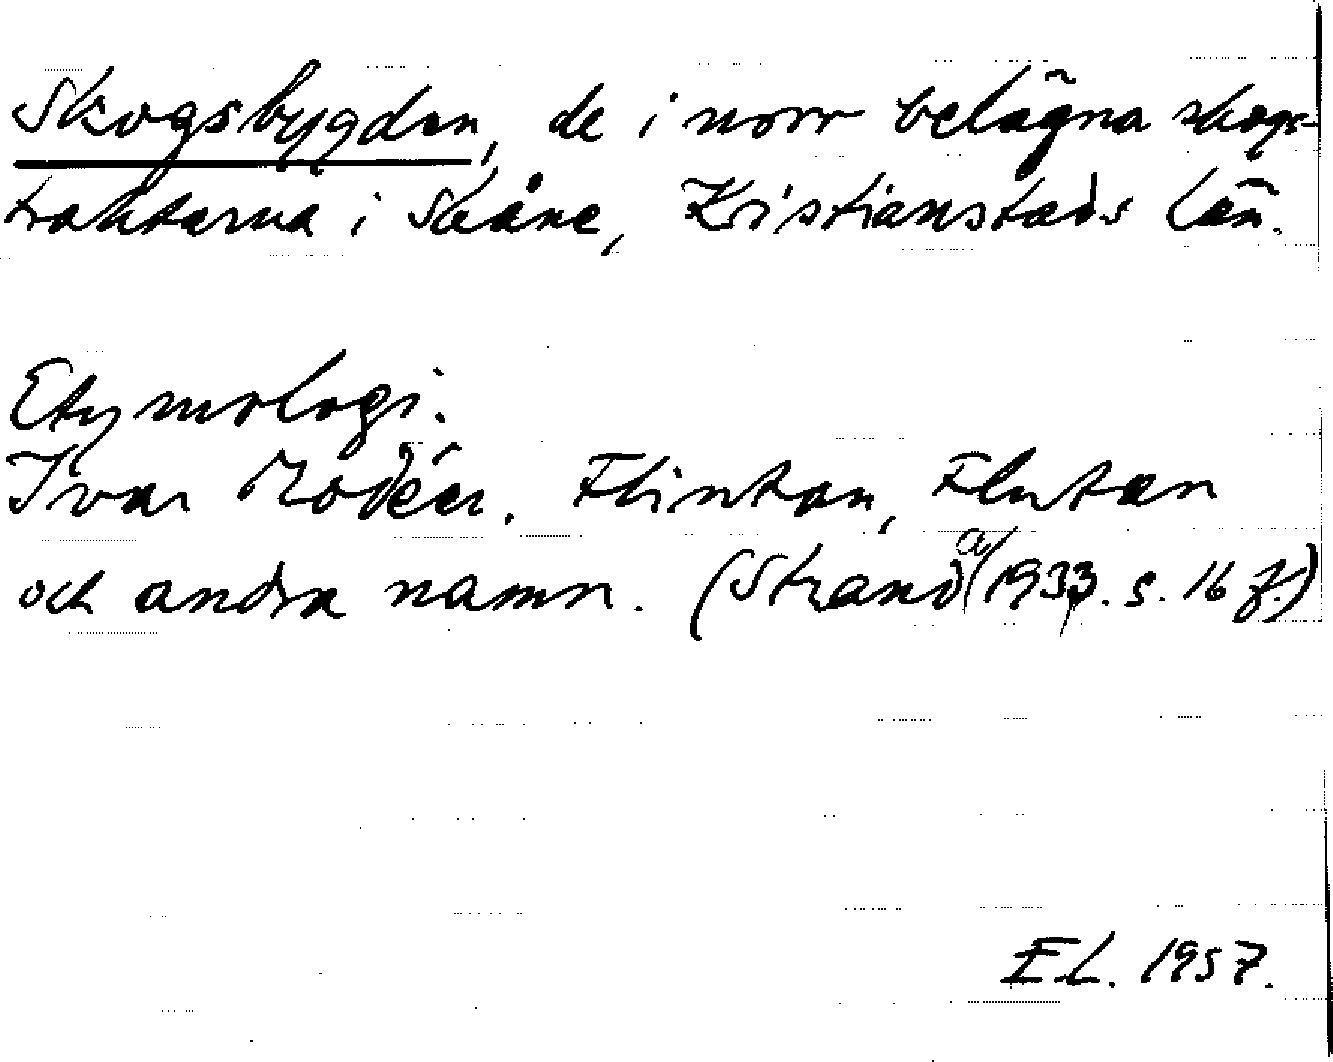 Skogsbygden, de i norr belägna skogs-
trakterna i Skåne, Kristianstads län.
Etymologi.
Ivar Modéer. Flintan, Flutan
och andra namn. (Stranda 1933. s. 16 f.)
E.L. 1957.